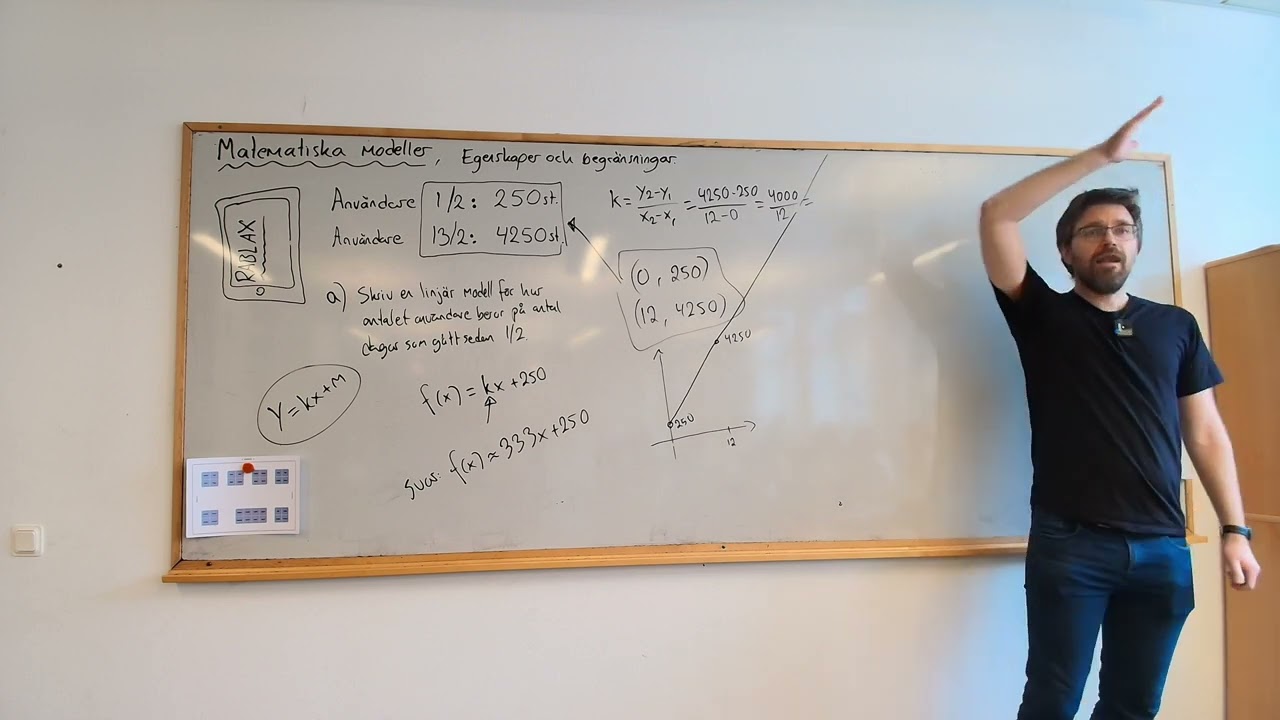 Matematiska modeller, Egenskaper och begränsningar.
RABLAX
Användare 1/2: 250st.
Användare 13/2: 4250st.
a) Skriv en linjär modell för hur
antalet användare beror på antal
dagar som gått sedan 1/2.
y=kx+m
f(x) = kx +250
Svar: f(x) ≈ 333x+250
k = y2-y1 / x2-x1 = 4250-250 / 12-0 = 4000 / 12 =
(0, 250)
(12, 4250)
4250
250
12